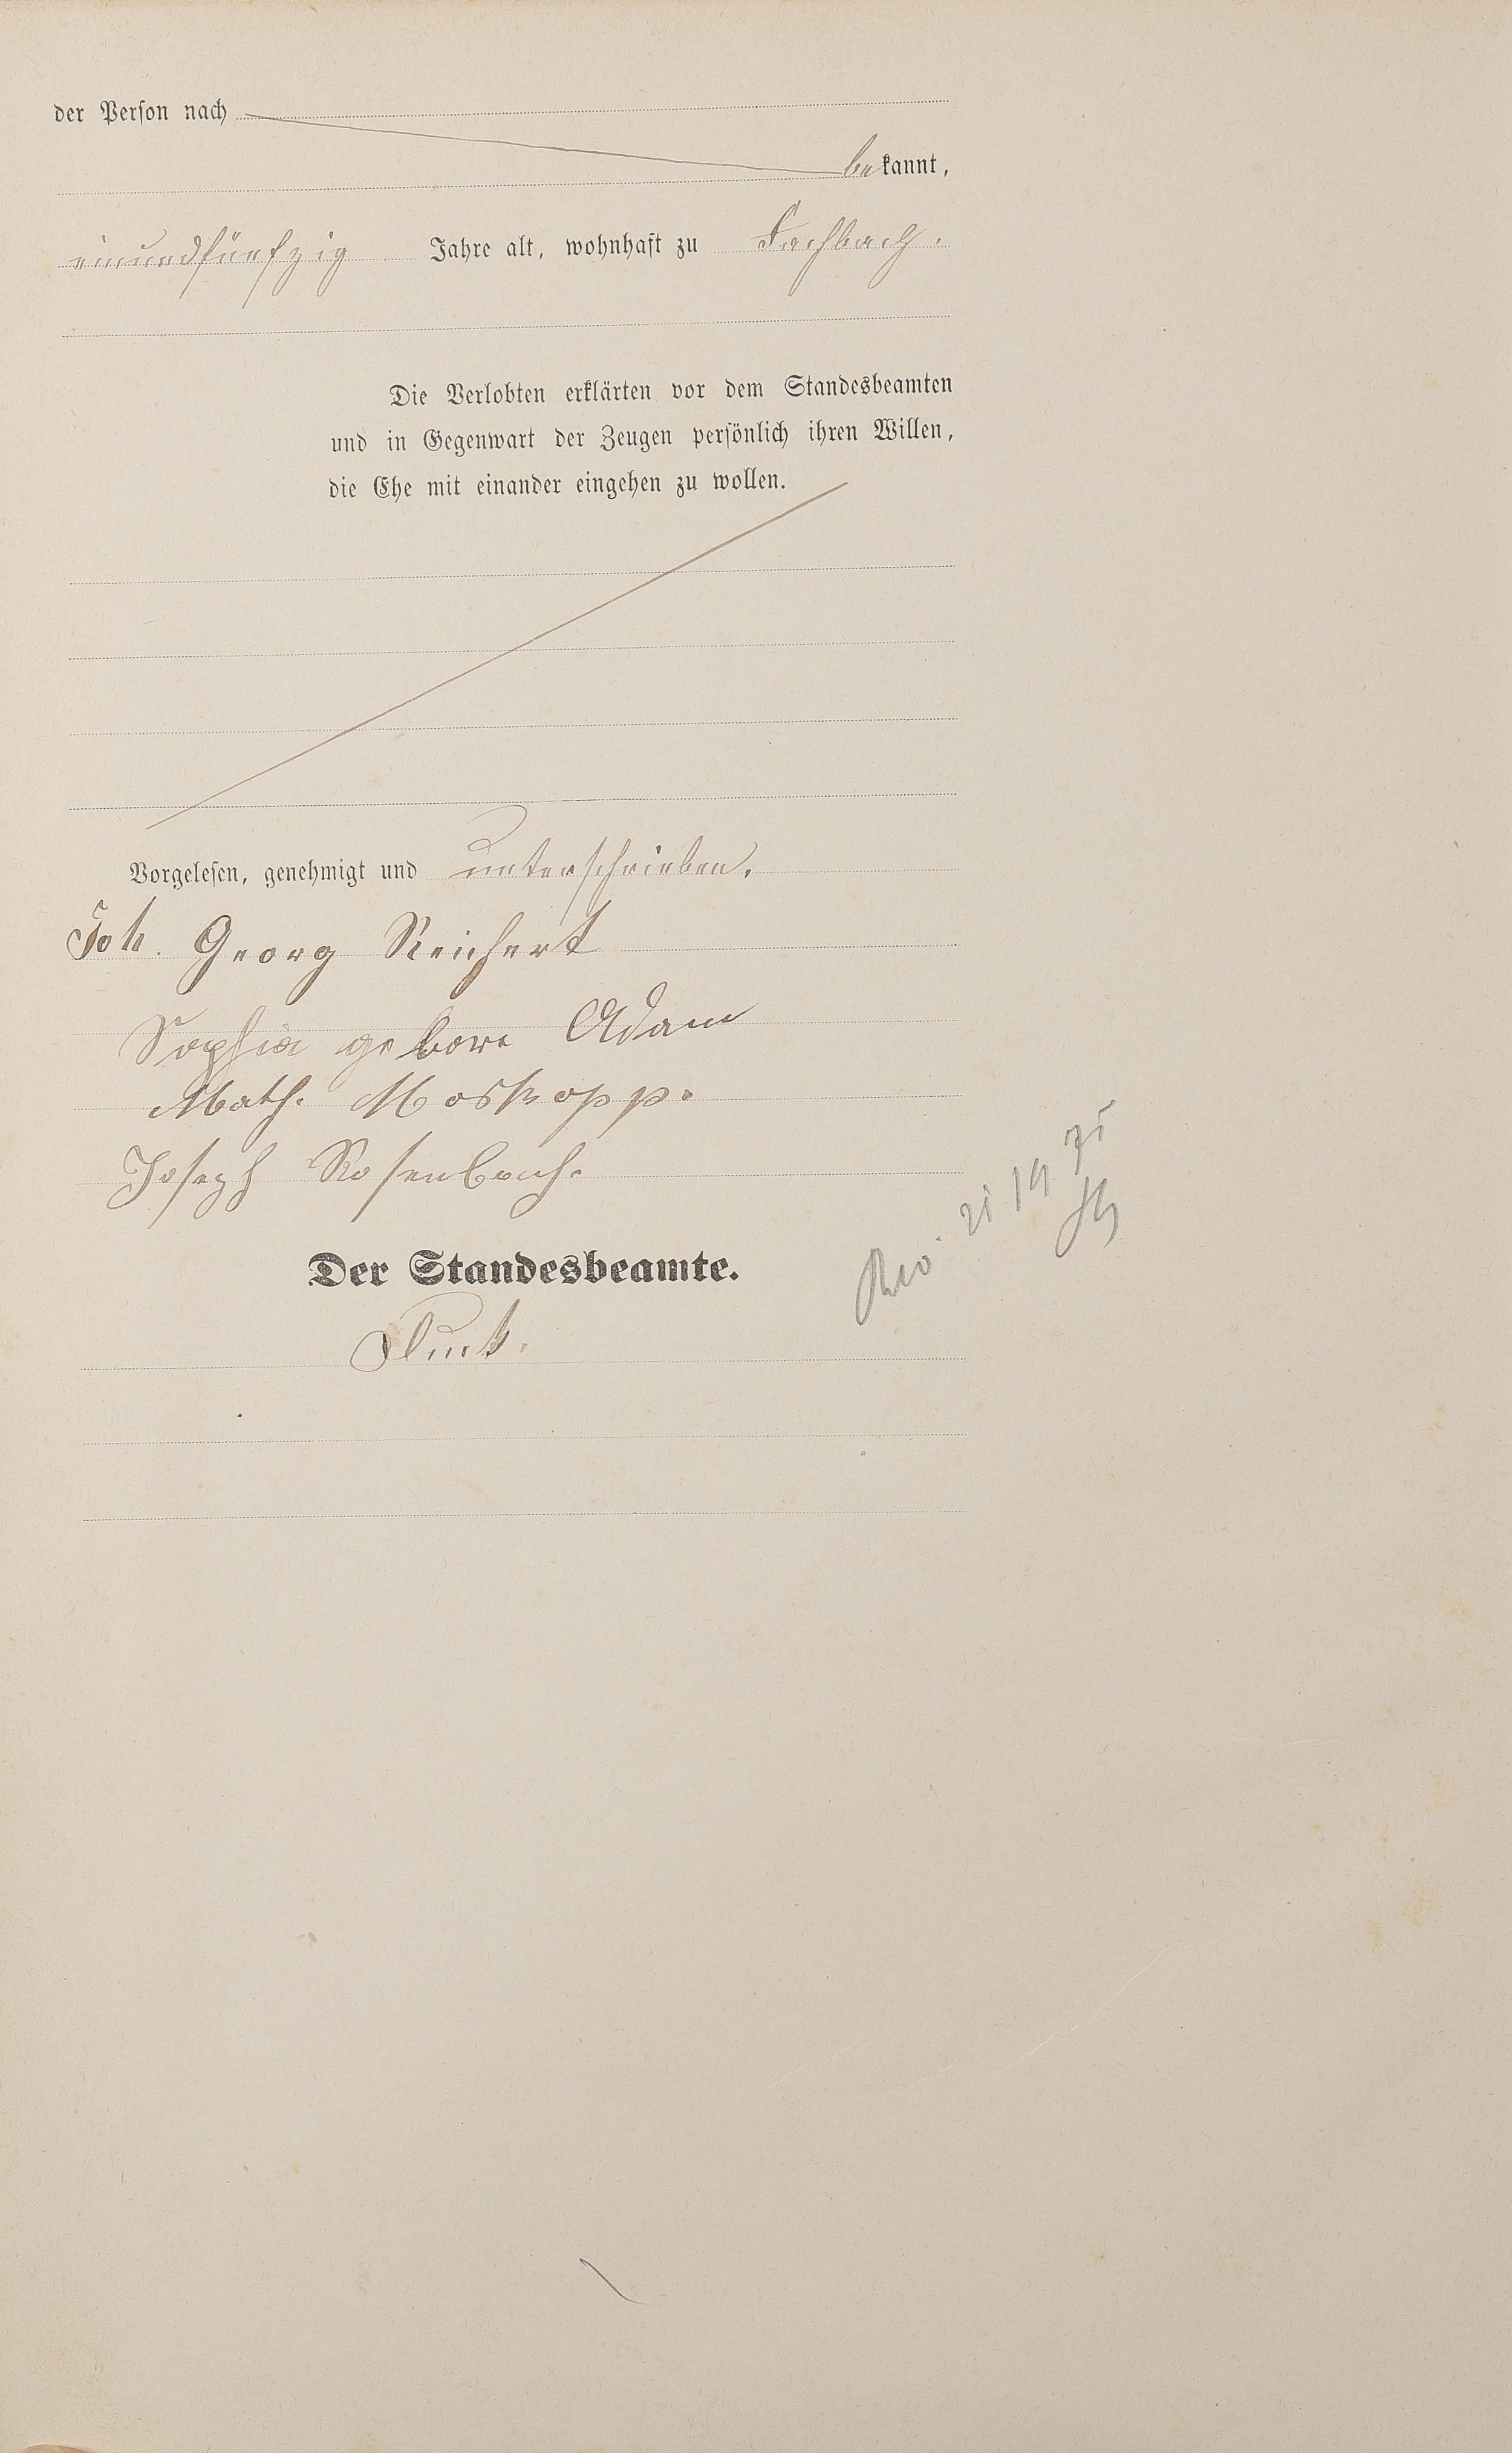 der Person nach
bekannt,
einundfünfzig Jahre alt, wohnhaft zu Fachbach.
Die Verlobten erklärten vor dem Standesbeamten
und in Gegenwart der Zeugen persönlich ihren Willen,
die Ehe mit einander eingehen zu wollen.
Vorgelesen, genehmigt und unterschrieben.
Joh. Georg Reichert
Sophia gebore Adam
Math. Moskopp.
Joseph Rosenbach.
Der Standesbeamte.
Fluck.
Rev.